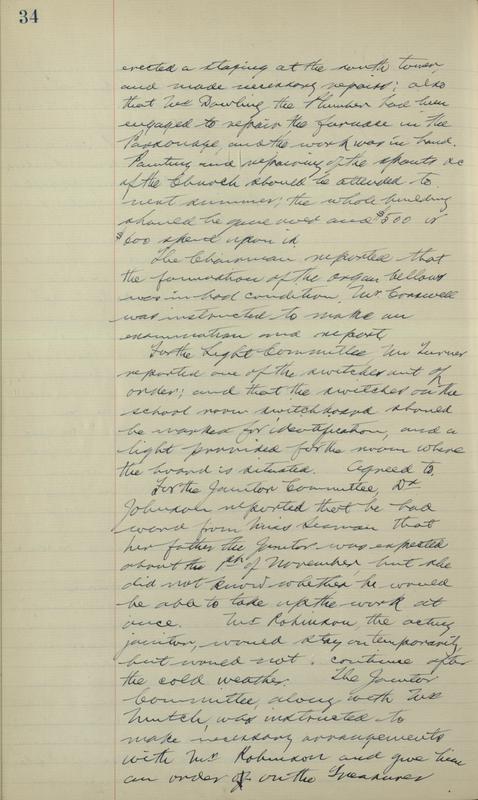 34
erected a staging at the south tower
and made necessary repairs; also
that Mr Dowling the Plumber had been
engaged to repair the furnace in the
Parsonage, and the work was in hand.
Painting and repairing of the spouts &c
of the Church should be attended to
next summer; the whole building
should be gone over and $500 or
$600 spent upon it
The Chairman reported that
the foundation of the organ bellows
was in bad condition. Mr
was instructed to make an
examination and report,
For the Light Committee, Mr Turner
reported one of the switches out of
order; and that the switches on the
school room switchboard should
be marked for identification, and a
light provided for the room where
the board is situated. Agreed to.
For the Janitor Committee, Dr
Johnson reported that he had
word from Miss Seaman that
her father the Janitor was expected
about the 1st of November, but she
did not know whether he would
be able to take up the work at
once. Mr Robinson, the acting
janitor, would stay on temporarily,
but would not continue after
the cold weather. The Janitor
Committee, along with Mr
was instructed to
make necessary arrangements
with Mr Robinson and give him
an order on the Treasurer